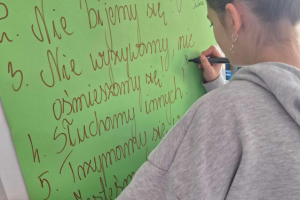 2. Nie bijemy się
3. Nie wyzywamy, nie
ośmieszamy się
4. Słuchamy innych
5. Trzymamy się